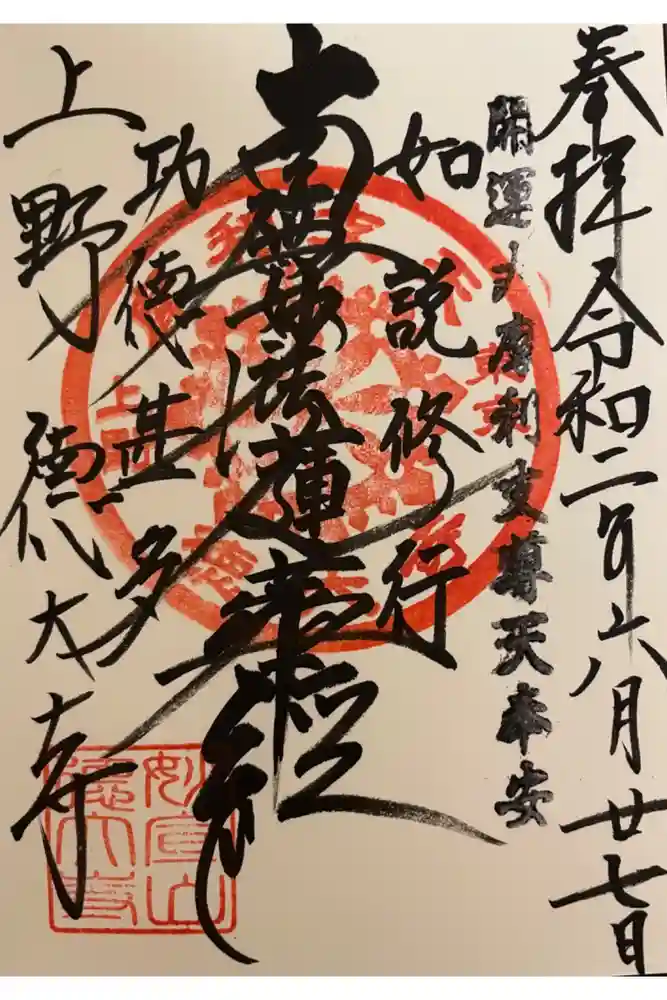 奉拝 令和二年六月廿七日
開運大摩利支尊天奉安
如説修行
南無妙法蓮華経
功徳甚多
上野 徳大寺
妙宣山
徳大寺